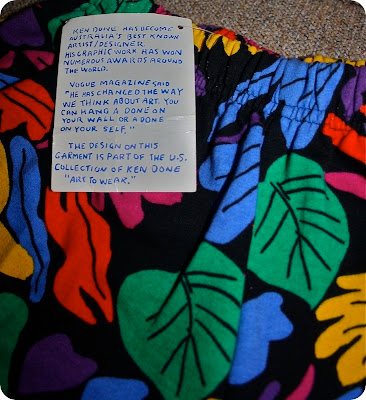 KEN DONE HAS BECOME
AUSTRALIA'S BEST KNOWN
ARTIST/DESIGNER.
HIS GRAPHIC WORK HAS WON
NUMEROUS AWARDS AROUND
THE WORLD.
VOGUE MAGAZINE SAID
"HE HAS CHANGED THE WAY
WE THINK ABOUT ART. YOU
CAN HANG A DONE ON
YOUR WALL, OR A DONE
ON YOUR SELF."
THE DESIGN ON THIS
GARMENT IS PART OF THE U.S.
COLLECTION OF KEN DONE
"ART TO WEAR."